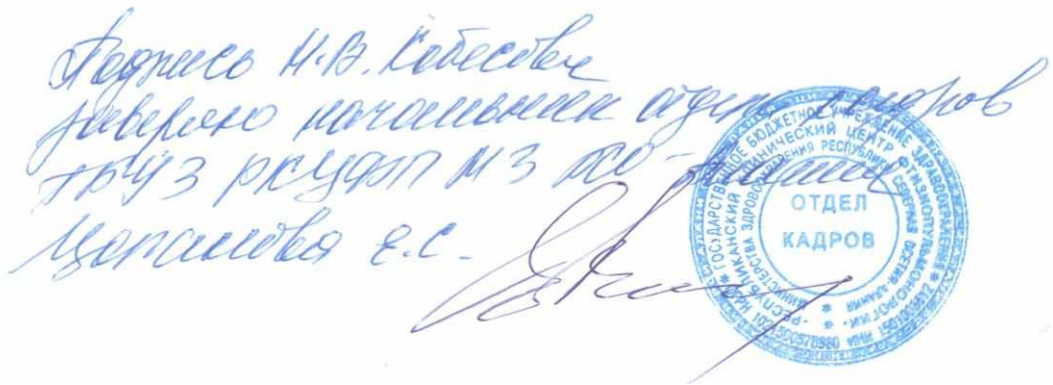 Подпись Н.В. Кобесовой
заверяю начальник отдела кадров
ГБУЗ РКЦФП МЗ РСО-Алания
Царикова Е.С.
ГОСУДАРСТВЕННОЕ БЮДЖЕТНОЕ УЧРЕЖДЕНИЕ ЗДРАВООХРАНЕНИЯ
РЕСПУБЛИКАНСКИЙ КЛИНИЧЕСКИЙ ЦЕНТР ФТИЗИОПУЛЬМОНОЛОГИИ
МИНИСТЕРСТВА ЗДРАВООХРАНЕНИЯ РЕСПУБЛИКИ СЕВЕРНАЯ ОСЕТИЯ-АЛАНИЯ
ОТДЕЛ
КАДРОВ